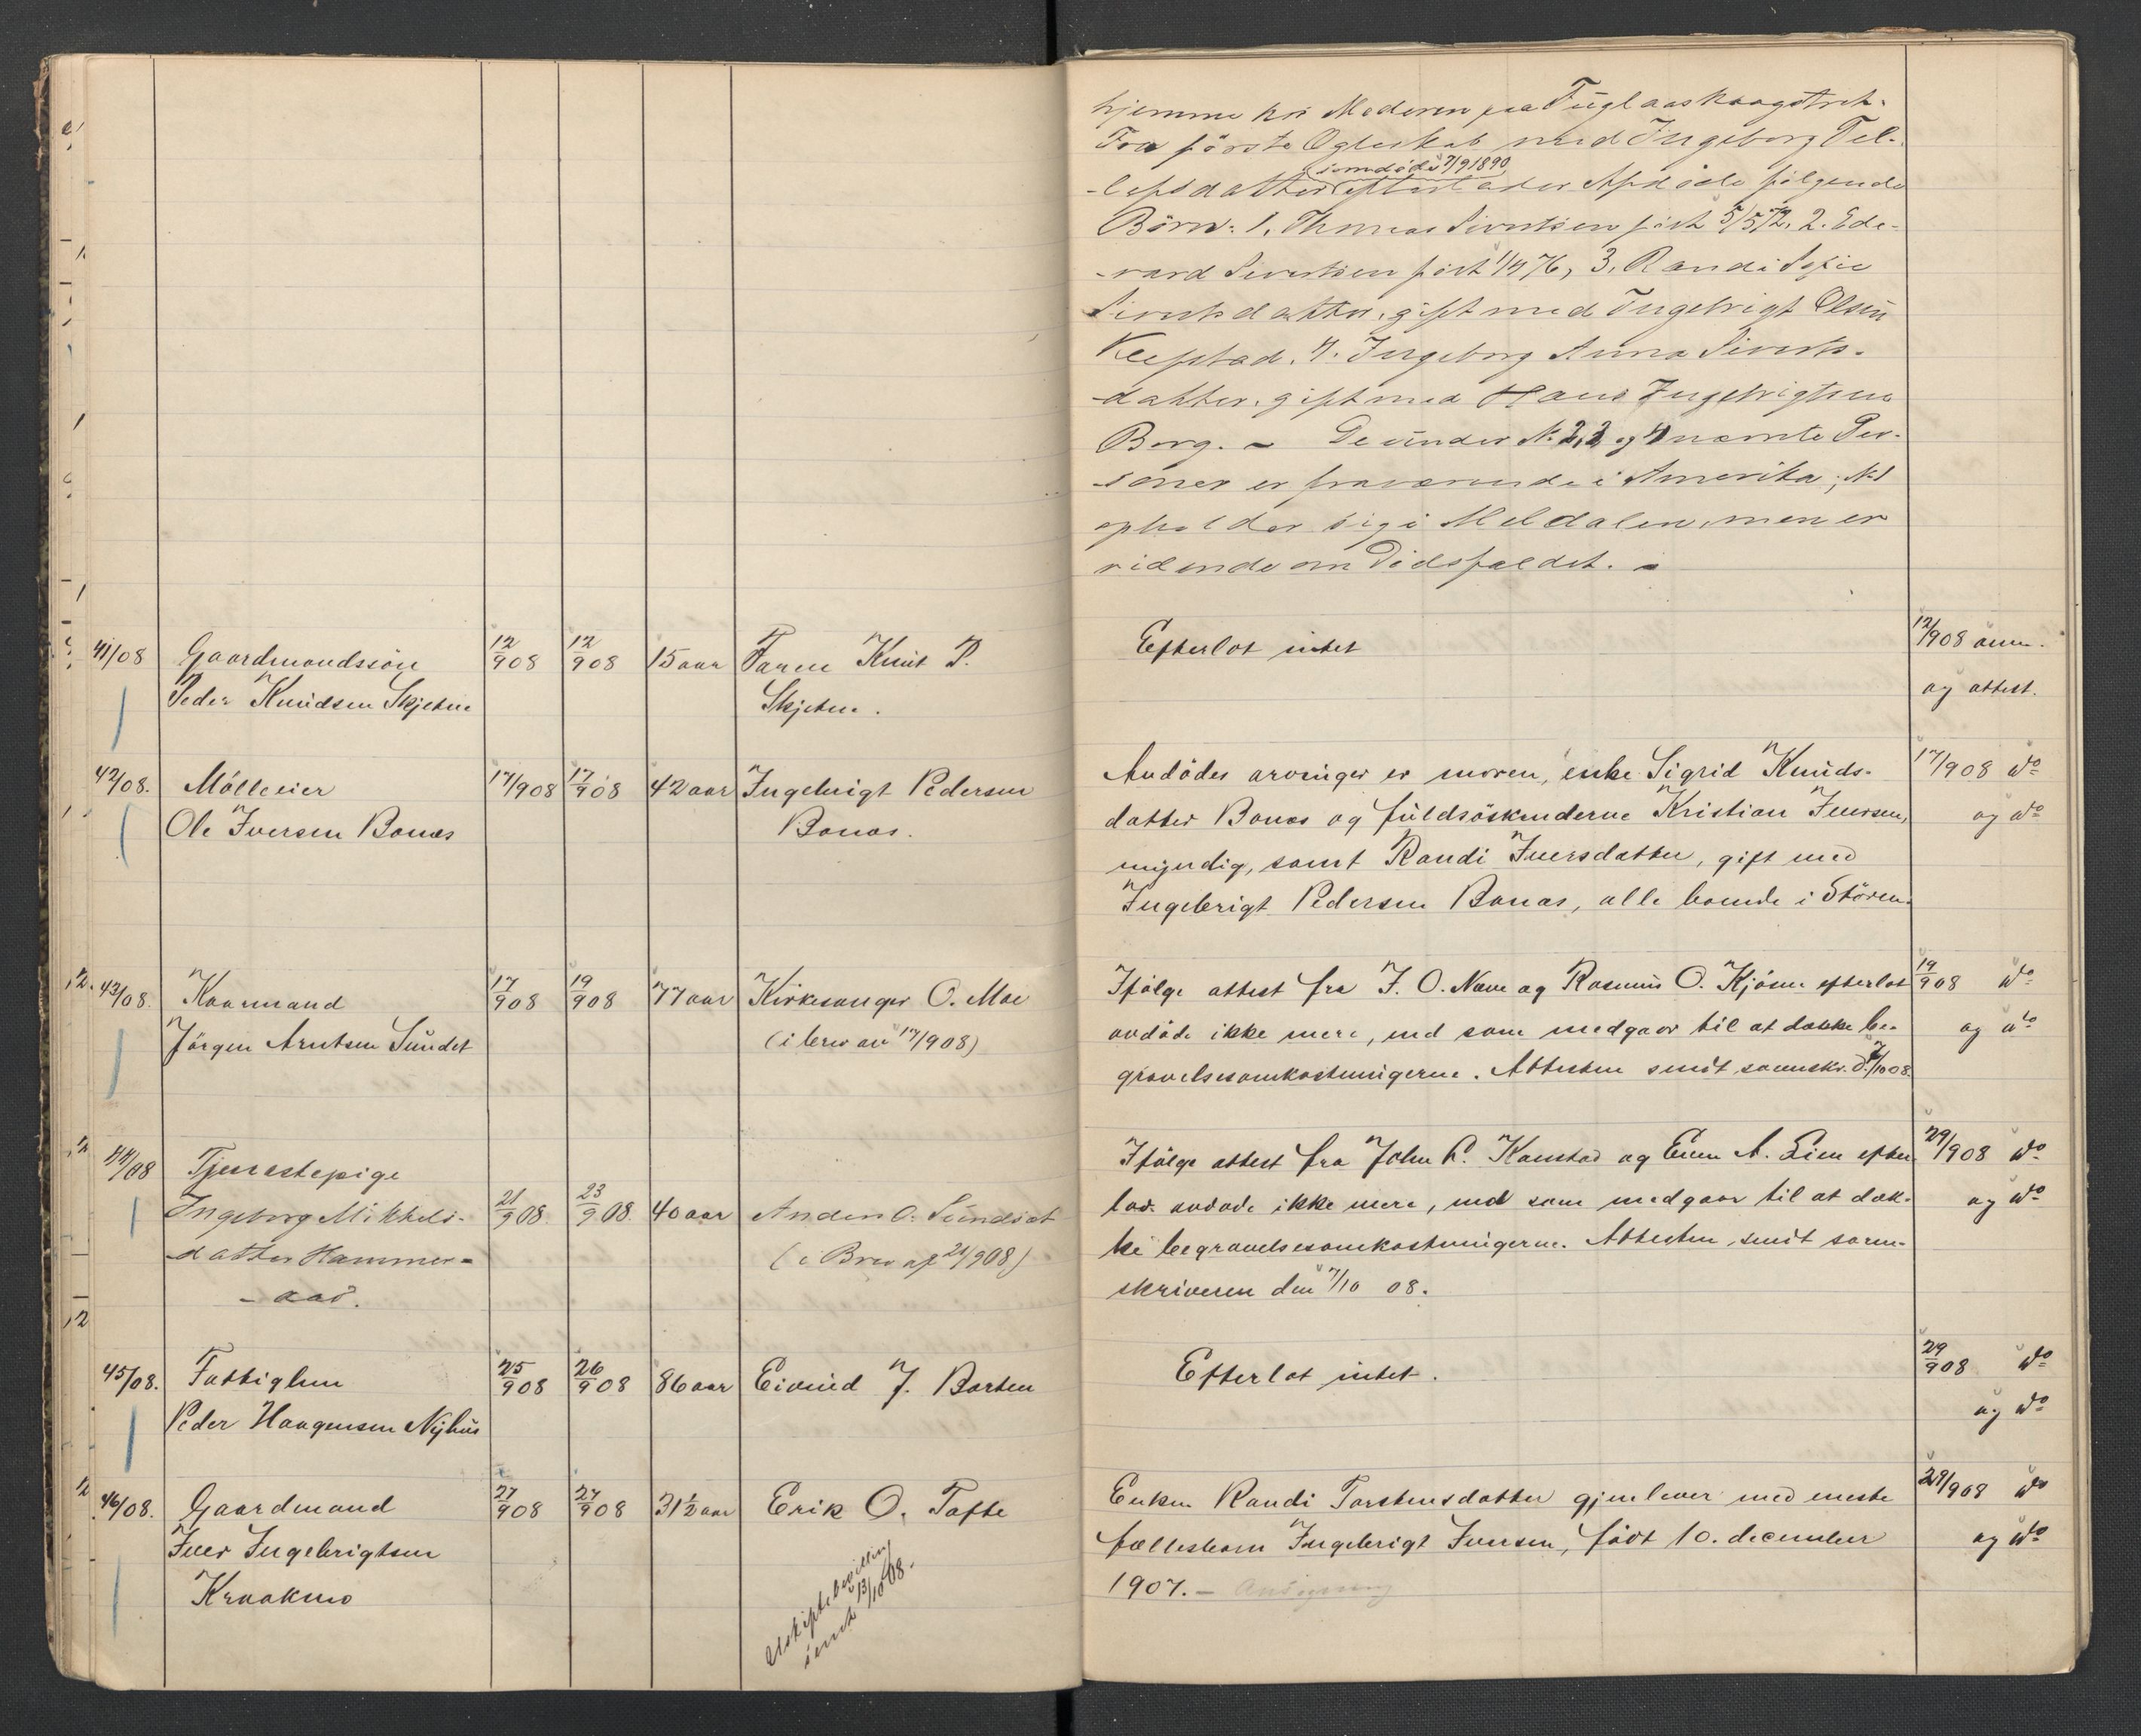 hjemme hos Moderen paa Fuglaaskaagstret.
Fra første Egteskab med Ingeborg Tel-
som døde 7/9 1890
-lefsdatter efterlader Afdøde følgende
Børn: 1. Thomas Sivertsen født 5/5 72. 2. Ede-
-vard Sivertsen født 76, 3. Randi Sofie
Sivertsdatter, gift med Ingebrigt Olsen
Klefstad. 4. Ingeborg Anna Siverts-
-datter, gift med Hans Ingebrigtsen
Borg. - De under No 2, 3 og 4 nævnte Per-
soner er fraværende i Amerika; No 1
opholder sig i Meldalen, men er
vidende om Dødsfaldet. -
41/08 Gaardmandssøn 12/9 08 12/9 08 15 aar Faren Knut P. Efterlot intet 12/9 08 anm.
Peder Knudsen Skjetne Skjetne. og attest.
42/08. Mølleeier 17/9 08 17/9 08 42 aar Ingebrigt Pedersen Avdødes arvinger er moren, enke Sigrid Knuds- 17/9 08 do
Ole Iversen Bones Bones. datter Bones og fuldsøskenderne Kristian Iversen, og do
myndig, samt Randi Iversdatter, gift med
Ingebrigt Pedersen Bones, alle boende i Støren.
43/08. Kaarmand 17/9 08 19/9 08 77 aar Kirkesanger O. Moe Ifølge attest fra J. O. Næve og Rasmus O. Kjøsne efterlot 19/9 08 do
Jørgen Arntsen Sundet (i brev av 17/9 08) avdøde ikke mere, end som medgaar til at dække be- og do
gravelsesomkostningerne. Attesten sendt sorenskr. d. 7/10 08.
44/08 Tjenestepige Ifølge attest fra John P. Kanstad og Even A. Lien efter- 29/9 08 do
Ingeborg Mikkels- 21/9 08. 23/9 08. 40 aar Anders O. Sundset lod avdøde ikke mere, end som medgaar til at dæk- og do
-datter Hammer- (i Brev af 21/9 08) ke begravelsesomkostningerne. Attesten sendt soren-
-aas. skriveren den 7/10 08.
45/08. Fattiglem 25/9 08 26/9 08 86 aar Eivind J. Borten Efterlot intet. 29/9 08 do
Peder Haagensen Nyhus og do
46/08. Gaardmand 27/9 08 27/9 08 31 1/2 aar Erik O. Tofte Enken Randi Torstensdatter gjenlever med eneste 29/9 08 do
Iver Ingebrigtsen fællesbarn Ingebrigt Iversen, født 10. december og do
Kraakmo 1907. - Ansøgning
Uskiftebevilling
sendt 13/10 08.